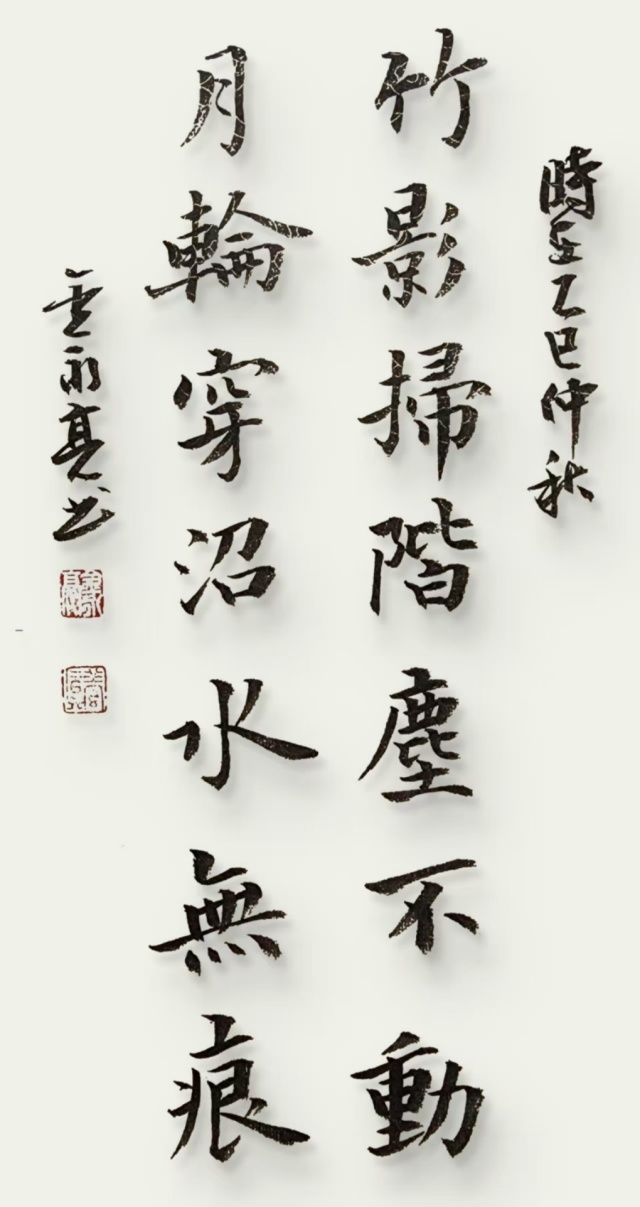 時在乙巳仲秋
竹影掃階塵不動
月輪穿沼水無痕
永亮书